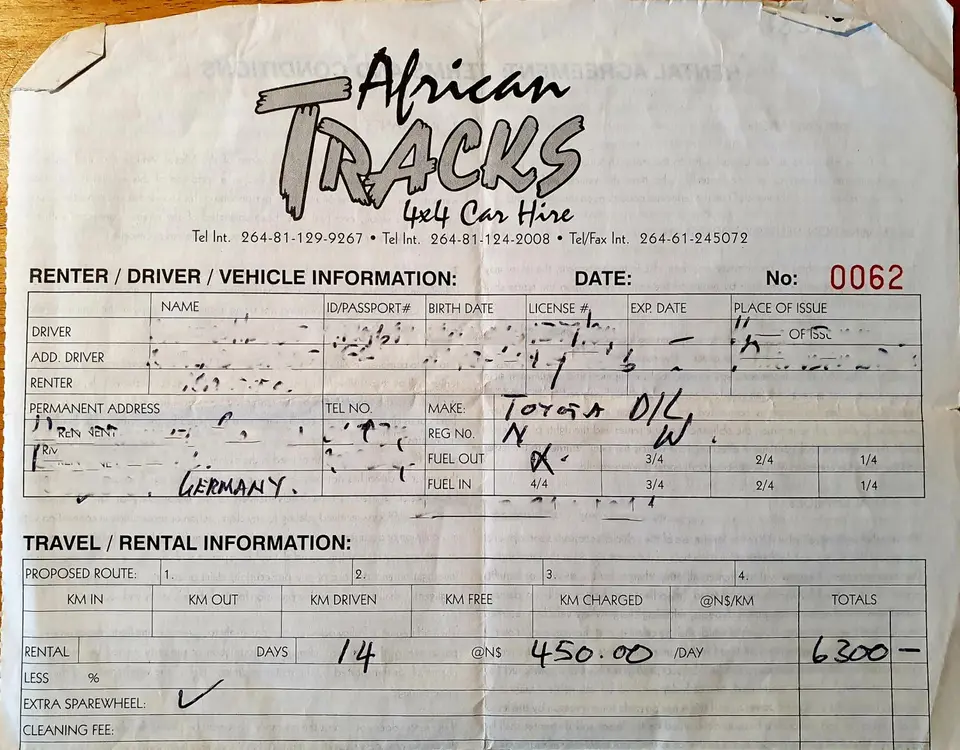 African
TRACKS
4x4 Car Hire
Tel Int. 264-81-129-9267 • Tel Int. 264-81-124-2008 • Tel/Fax Int. 264-61-245072
RENTER / DRIVER / VEHICLE INFORMATION: DATE: No: 0062
NAME ID/PASSPORT# BIRTH DATE LICENSE # EXP. DATE PLACE OF ISSUE
DRIVER
ADD. DRIVER
RENTER
PERMANENT ADDRESS TEL NO. MAKE: TOYOTA D/C
REG NO. N W
FUEL OUT 3/4 2/4 1/4
GERMANY. FUEL IN 4/4 3/4 2/4 1/4
TRAVEL / RENTAL INFORMATION:
PROPOSED ROUTE: 1. 2. 3. 4.
KM IN KM OUT KM DRIVEN KM FREE KM CHARGED @N$/KM TOTALS
RENTAL DAYS 14 @N$ 450.00 /DAY 6300 —
LESS %
EXTRA SPAREWHEEL: ✓
CLEANING FEE: